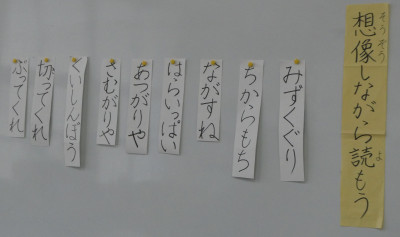 想像しながら読もう
みずくぐり
ちからもち
ながすね
はらいっぱい
あつがりや
さむがりや
くいしんぼう
切ってくれ
ぶってくれ